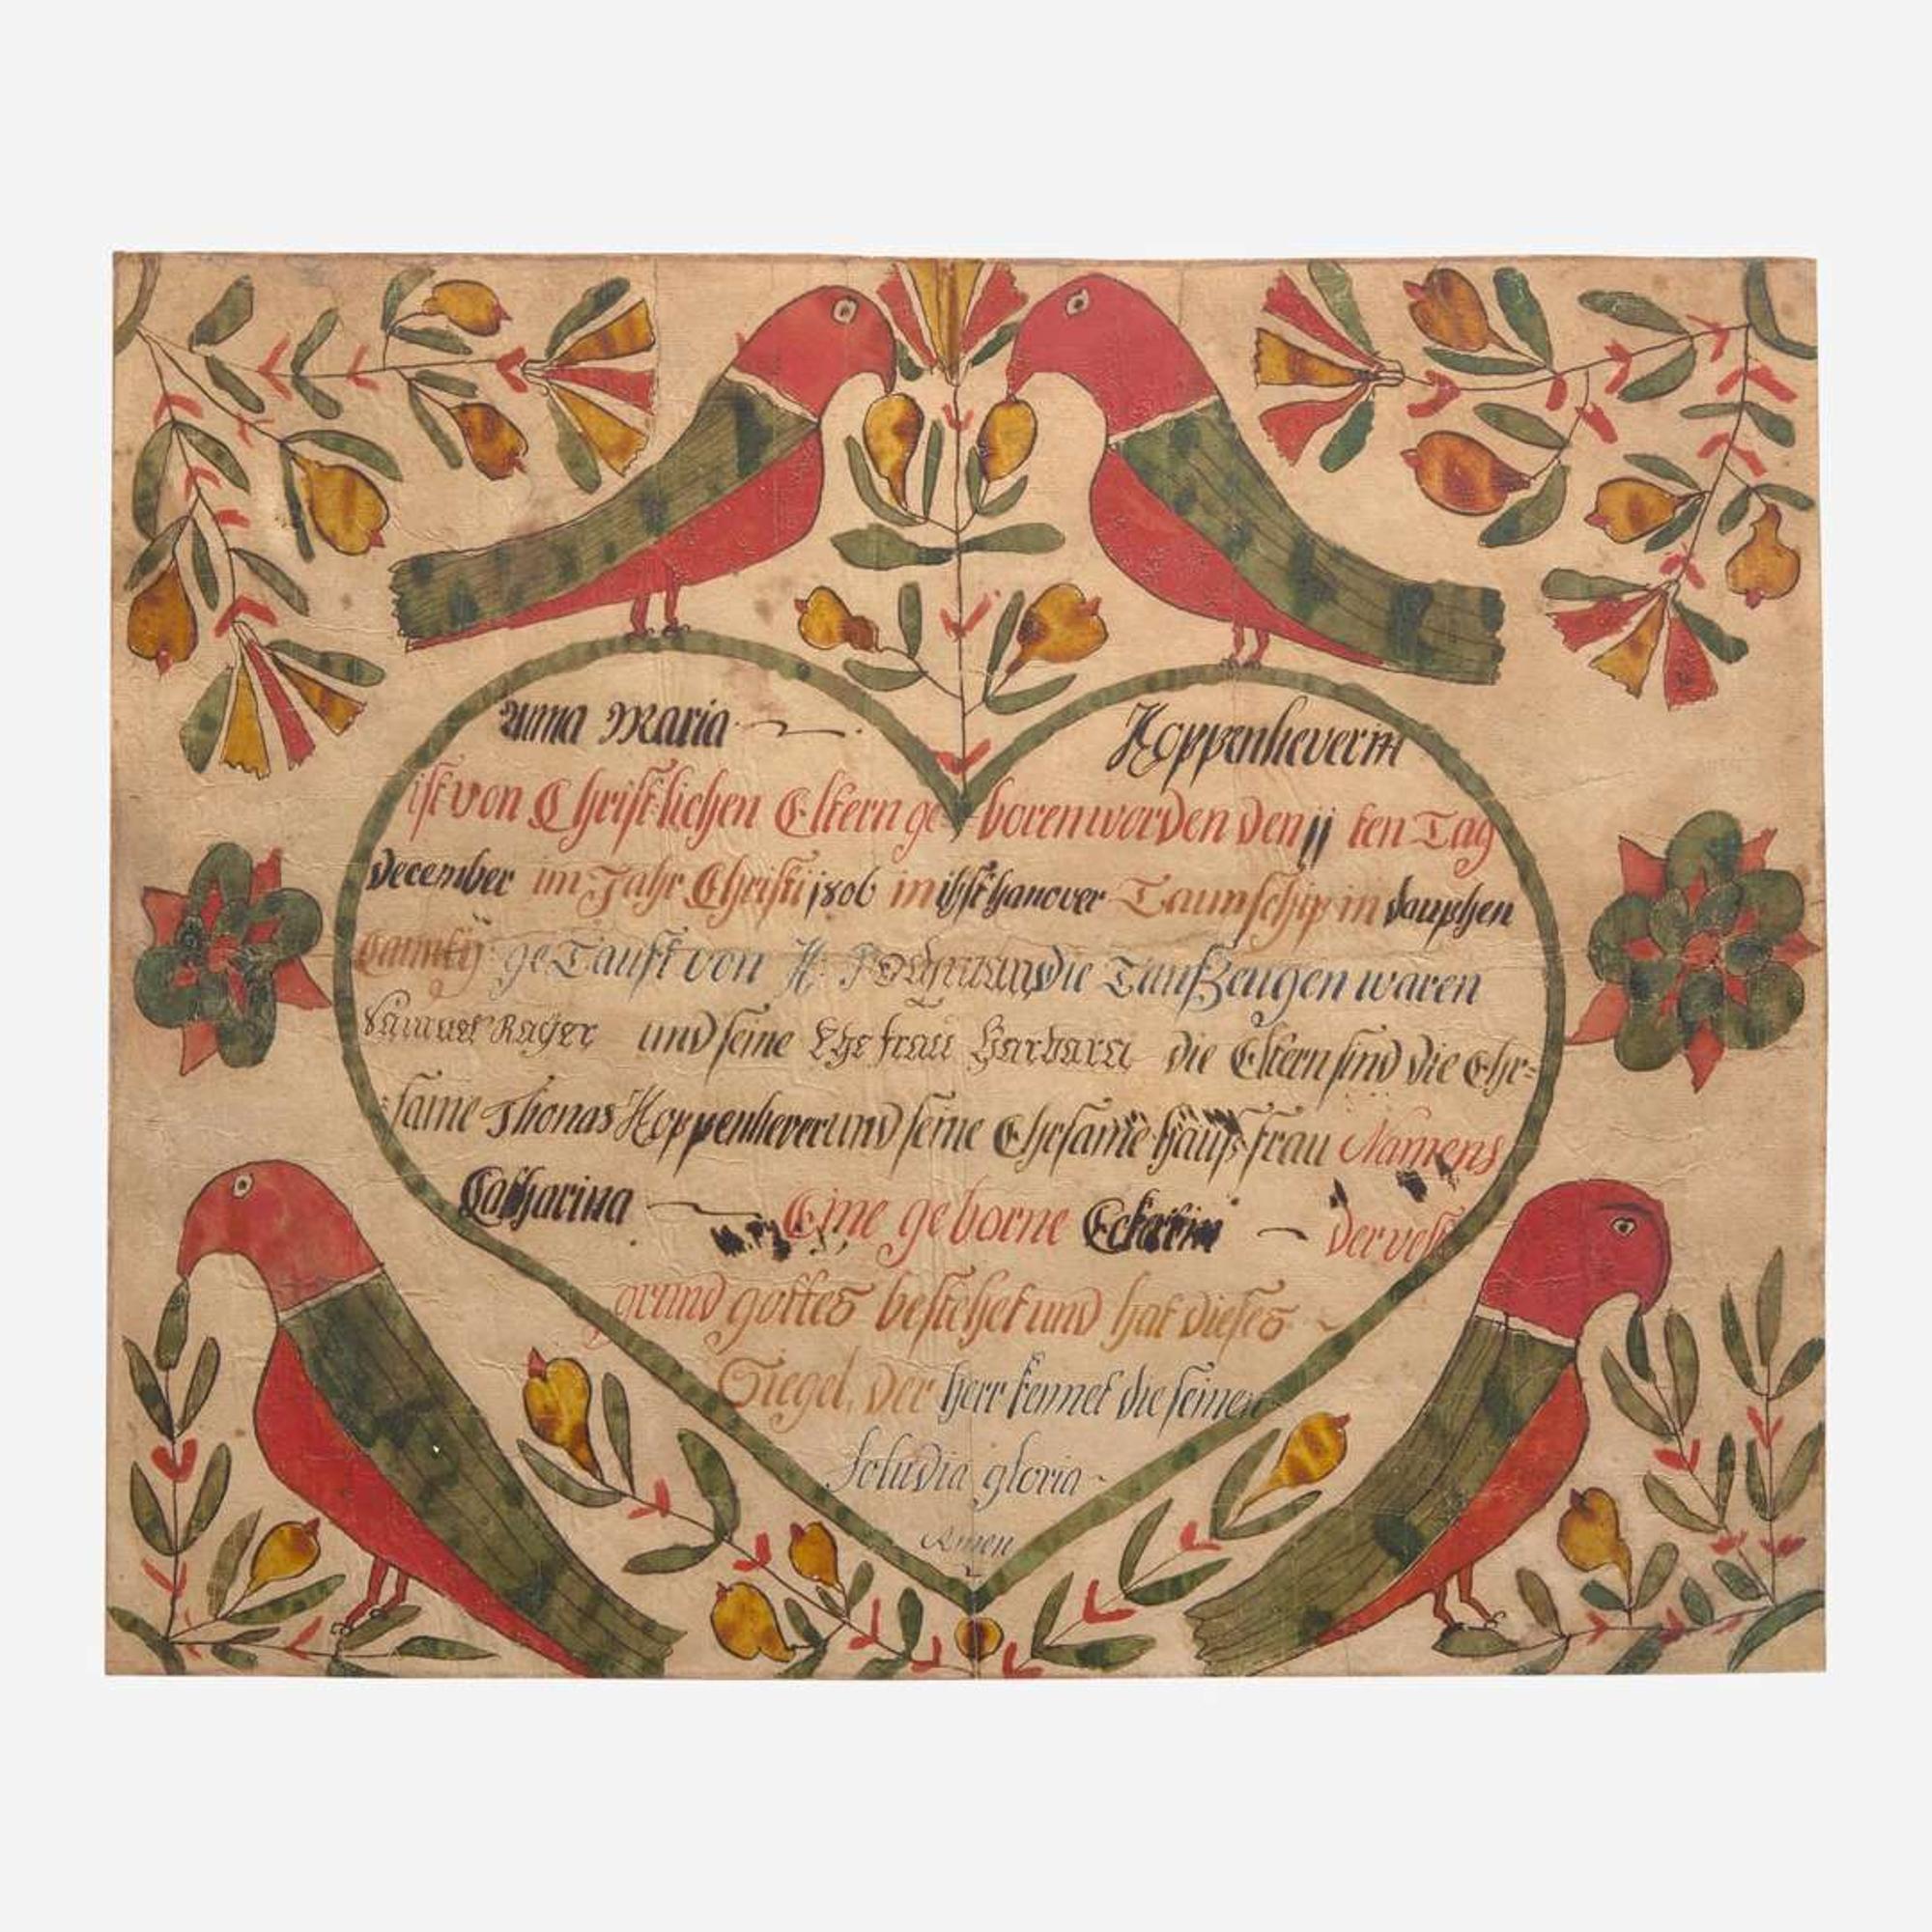 Anna Maria Koppenheverin
ist von Christlichen Eltern ge boren worden den 11 ten Tag
December im Jahr Christi 1806 in Taunschip in Dauphen
Caunty ge Tauft von H: die Taufzeugen waren
Samuel Rayer und seine Ehe frau Barbara die Eltern sind die Ehr=
=same Thonas Koppenhever und seine Ehrsame Hauß frau Namens
Catharina Eine ge borne der vest
grund gottes bestehet und hat dieses
Siegel, der herr kennet die seinen
Soludia gloria
Amen